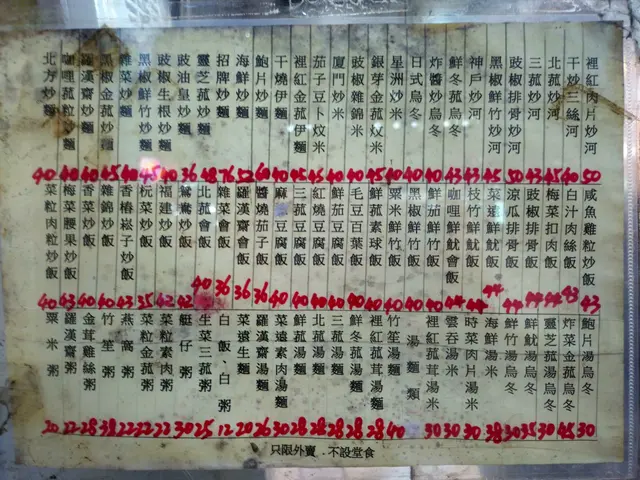 裡紅肉片炒河 50
干炒三絲河 40
北菇炒河 45
三菰炒河 43
豉椒排骨炒河 50
黑椒鮮竹炒河 45
神戶炒河 43
鮮冬菰烏冬 43
炸醬炒烏冬 40
日式烏冬 40
星洲炒米 40
銀芽金菰炆米 40
豉椒雜錦米 45
廈門炒米 40
茄子豆卜炆米 45
裡紅金菰伊麵 45
干燒伊麵 40
鮑片炒麵 60
海鮮炒麵 52
招牌炒麵 76
靈芝菰炒麵 48
豉油皇炒麵 36
豉椒生根炒麵 40
黑椒鮮竹炒麵 45
雜菜炒麵 40
黑椒金菰炒麵 45
羅漢齋炒麵 40
咖喱菰粒炒麵 40
北方炒麵 40
咸魚雞粒炒飯 43
白汁肉絲飯 43
梅菜扣肉飯 44
豉椒排骨飯 44
涼瓜排骨飯 44
菜遠鮮魷飯 44
枝竹鮮魷飯 44
咖喱鮮魷會飯 44
鮮茄鮮竹飯 40
黑椒鮮竹飯 40
粟米鮮竹飯 40
鮮菰素球飯 40
毛豆百葉飯 40
鮮茄豆腐飯 40
紅燒豆腐飯 40
三菰豆腐飯 40
麻豆腐飯 40
醬燒茄子飯 36
羅漢齋會飯 36
雜菜會飯 36
北菰會飯 40
鴛鴦炒飯 42
福建炒飯 42
杬菜炒飯 35
香椿崧子炒飯 43
雜錦炒飯 40
香菜炒飯 40
梅菜腰果炒飯 43
菜粒肉粒炒飯 40
鮑片湯烏冬 30
炸菜金菰湯烏冬 45
靈芝菰湯烏冬 30
鮮魷湯烏冬 35
鮮竹湯烏冬 30
海鮮湯米 38
時菜肉片湯米 30
雲吞湯米 30
裡紅菰茸湯米 30
湯麵類
竹笙湯麵 40
裡紅菰茸湯麵 28
鮮冬菰湯麵 28
三菰湯麵 28
北菰湯麵 28
鮮菰湯麵 28
菜遠素肉湯麵 30
羅漢齋湯麵 26
菜遠生麵 20
白飯、白粥 12
生菜三菰粥 25
艇仔粥 30
菜粒素肉粥 22
菜粒金菰粥 22
燕窩粥 22
竹笙粥 38
金茸雞絲粥 28
羅漢齋粥 22
粟米粥 20
只限外賣．不設堂食